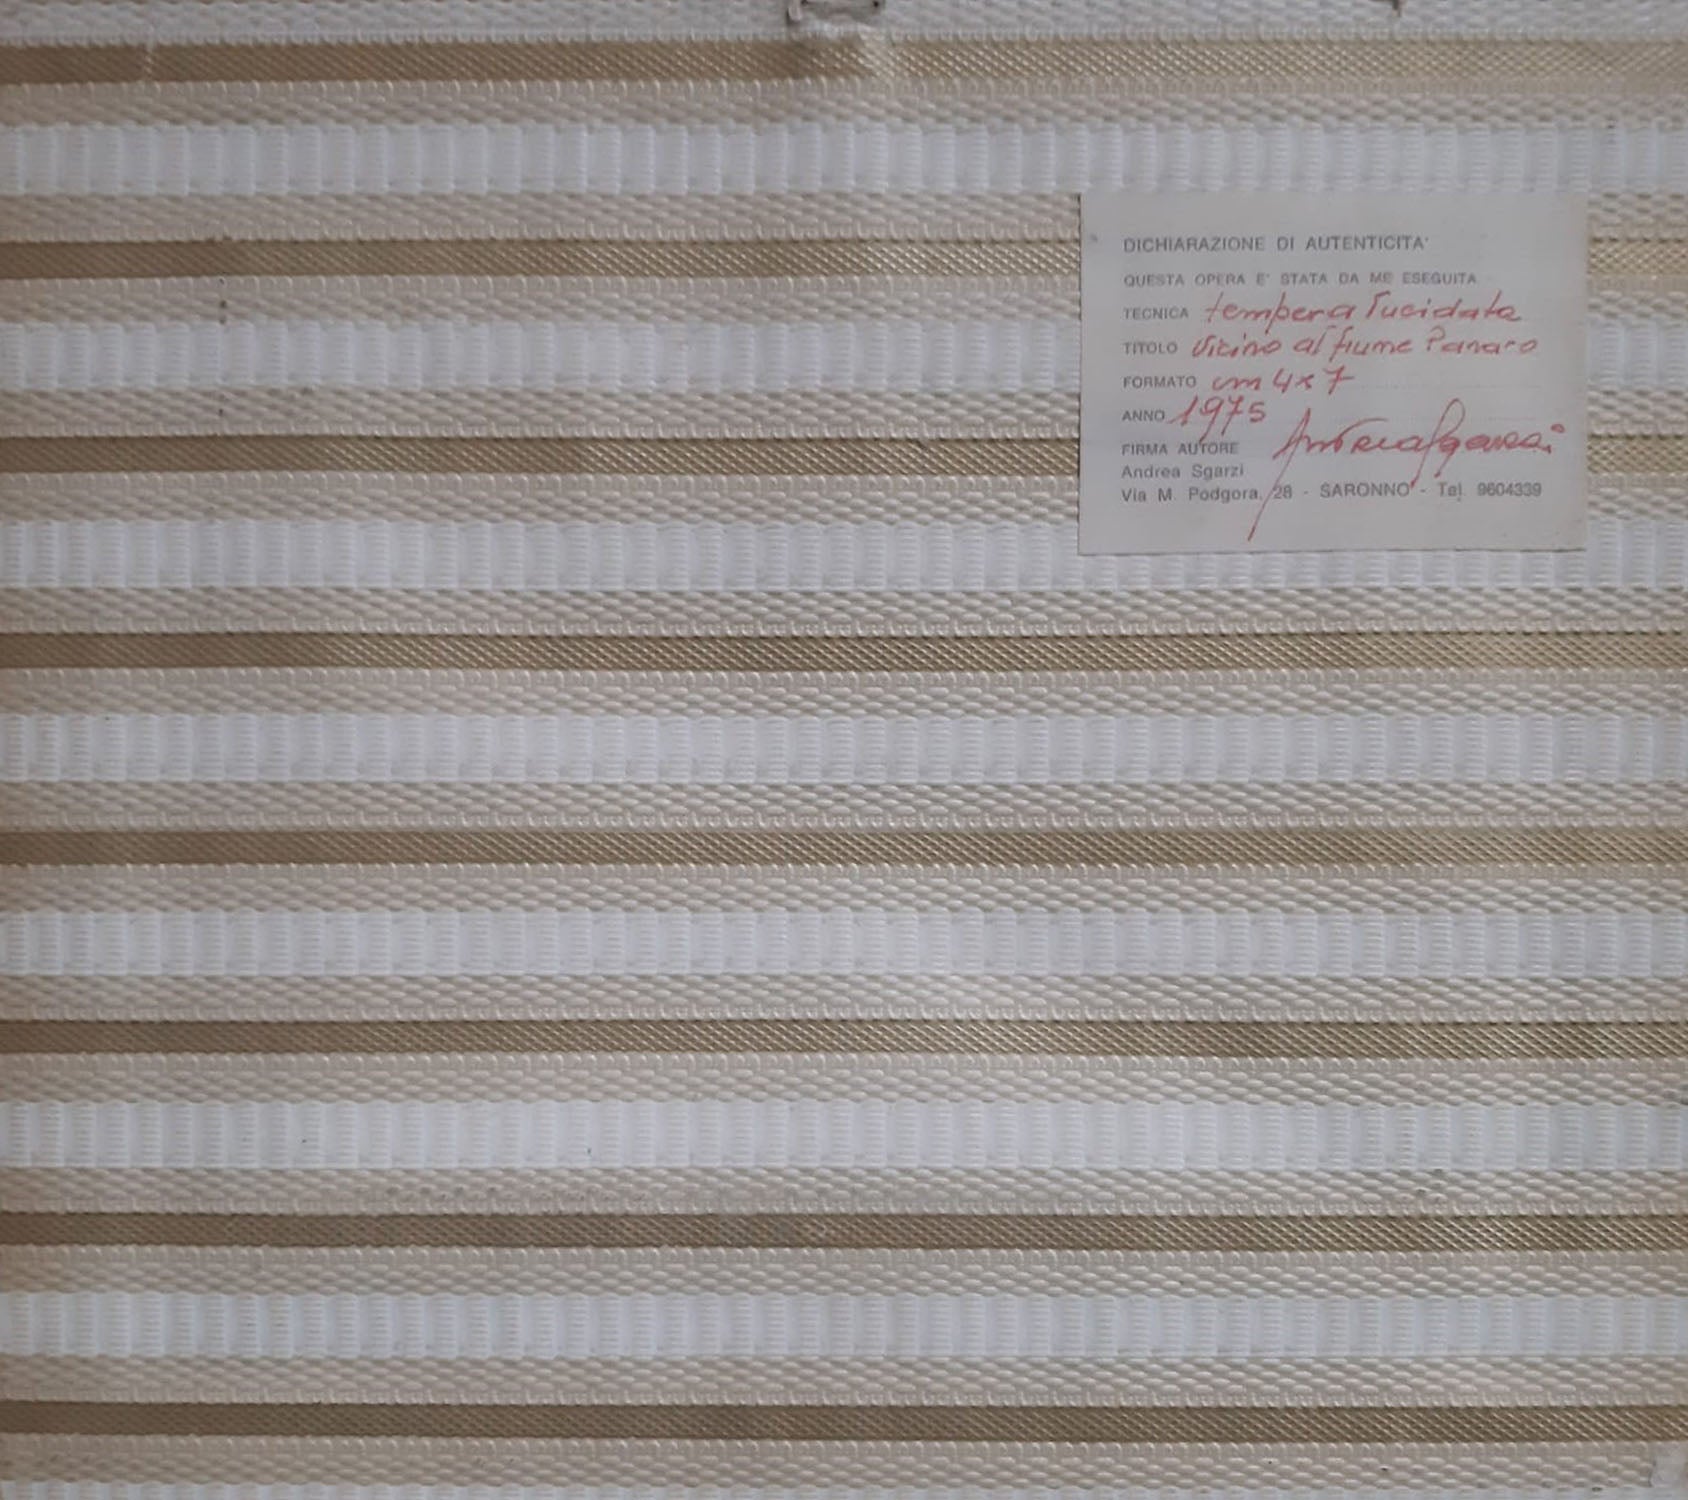 DICHIARAZIONE DI AUTENTICITA'
QUESTA OPERA E' STATA DA ME ESEGUITA
TECNICA tempera lucidata
TITOLO Vicino al fiume Panaro
FORMATO cm 4x7
ANNO 1975
FIRMA AUTORE Andrea Sgarzi
Andrea Sgarzi
Via M. Podgora, 28 - SARONNO - Tel. 9604339